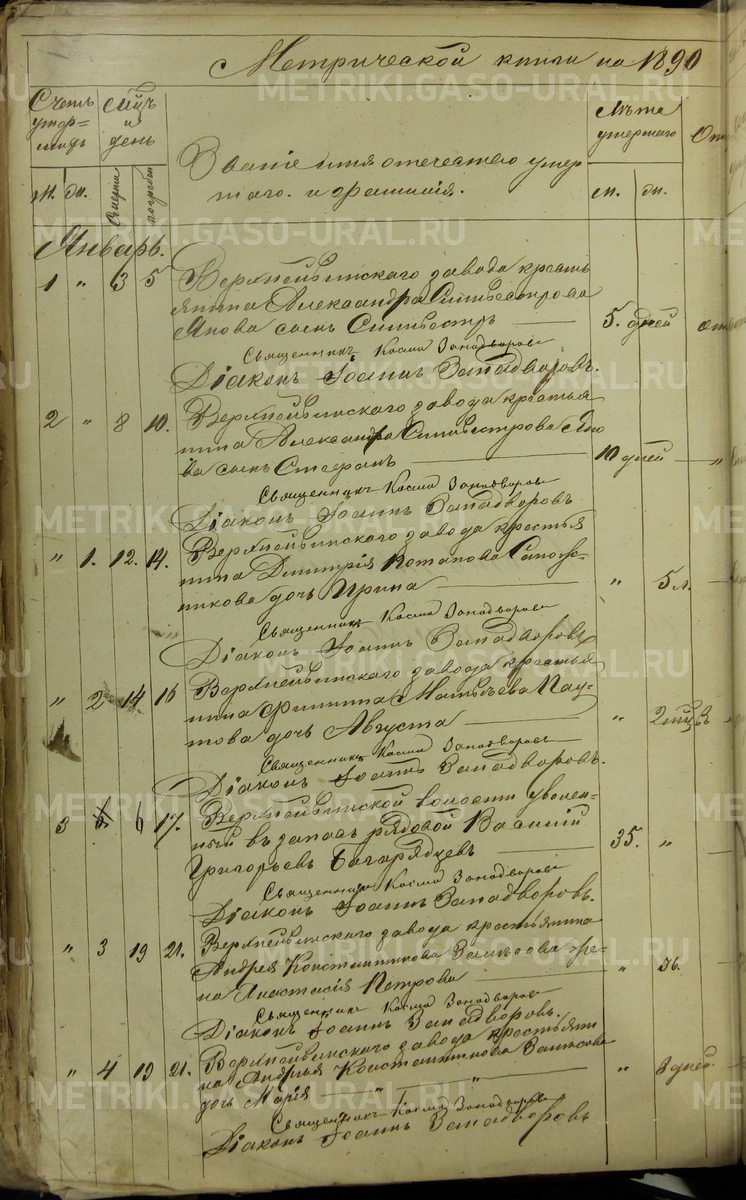 Метрической книги на 1890
Счетъ умер=шихъ
Мѣсяцъ и день
Званіе имя отечество умер
шаго и фамилія.
Лѣта умершаго
м. ж. смерти погребен
м. ж.
Январь.
1 " 3 5 Верхнейвинскаго завода кресть
янина Александра Сильвестрова
Янова сынъ Сильвестръ 5. дней
Священникъ Косма Западворовъ
Діаконъ Іоаннъ Западворовъ.
2 " 8 10. Верхнейвинскаго завода крестья
нина Александра Сильвестрова Яно
ва сынъ Стефанъ 10 дней
Священникъ Косма Западворовъ
Діаконъ Іоаннъ Западворовъ
" 1. 12. 14. Верхнейвинскаго завода крестья
нина Димитрія Потапова Сапож-
никова дочь Ирина " 5 л.
Священникъ Косма Западворовъ
Діаконъ Іоаннъ Западворовъ
" 2 14 16 Верхнейвинскаго завода крестья
нина Филиппа Матвѣева Пау-
това дочь Августа " 2 мѣс.
Священникъ Косма Западворовъ
Діаконъ Іоаннъ Западворовъ.
3 6 17. Верхнейвинской волости уволен-
ный въ запасъ рядовой Василій
Григорьевъ Багарядцевъ 35. "
Священникъ Косма Западворовъ
Діаконъ Іоаннъ Западворовъ.
" 3 19 21. Верхнейвинскаго завода крестьянина
Андрея Константинова жe-
на Анастасія Петрова " 36.
Священникъ Косма Западворовъ
Діаконъ Іоаннъ Западворовъ.
" 4 19 21. Верхнейвинскаго завода крестьяни
на Андрея Константинова
дочь Марія " " " 8 дней
Священникъ Косма Западворовъ
Діаконъ Іоаннъ Западворовъ
METRIKI.GASO-URAL.RU